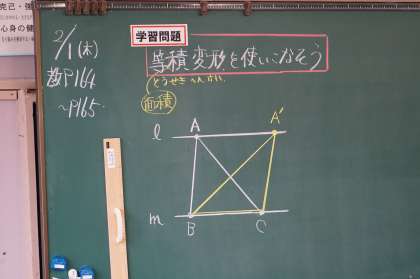 克己・強
心身の健
2/1(木)
P164
~P165
学習問題
等積変形を使いこなそう
とうせきへんけい
面積
l
A
A'
m
B
C